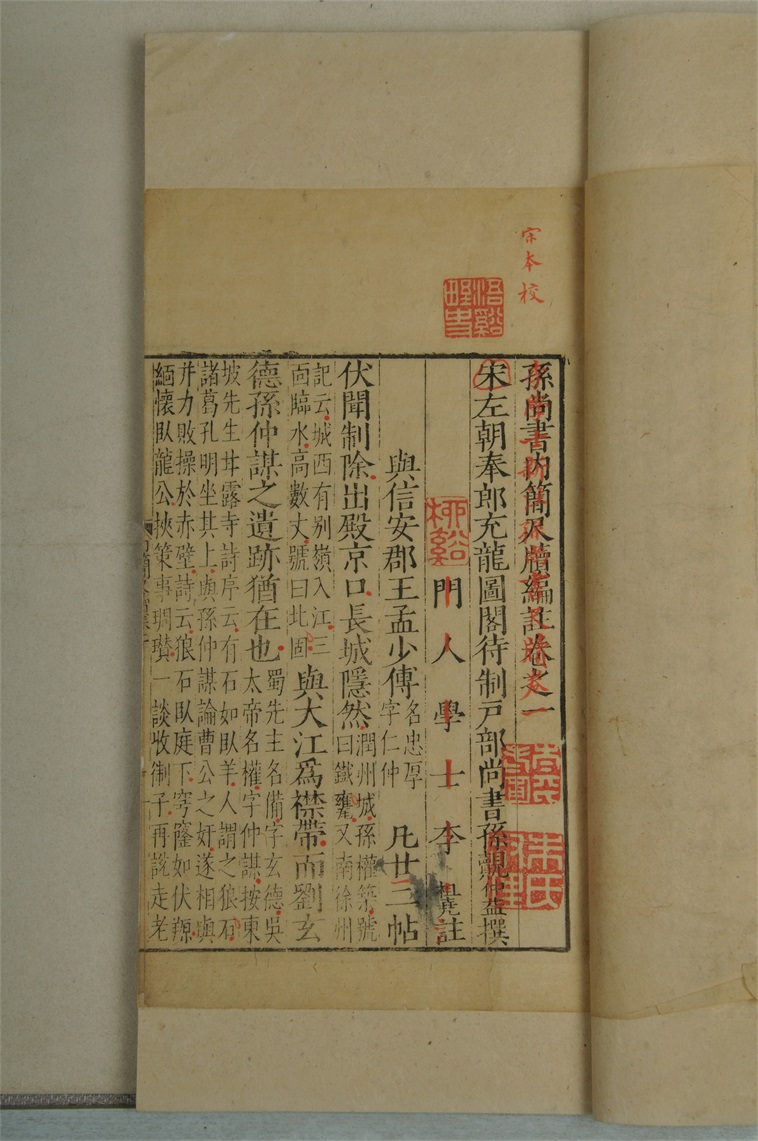 宋本校
孫尚書內簡尺牘編註卷之一
宋左朝奉郎充龍圖閣待制戸部尚書孫覿仲益撰
門人學士李祖堯註
與信安郡王孟少傅名忠厚字仁仲 凡廿三帖
伏聞制除出殿京口長城隱然潤州城孫權築號曰鐵甕又南徐州
記云城西有別嶺入江三面臨水高數丈號曰北固與大江爲襟帶而劉玄
德孫仲謀之遺跡猶在也蜀先主名備字玄德吳太帝名權字仲謀按東
坡先生甘露寺詩序云有石如臥羊人謂之狼石
諸葛孔明坐其上與孫仲謀論曹公之奸遂相與
并力敗操於赤壁詩云狼石臥庭下穹窿如伏羱
緬懷臥龍公挾策事琱瓚一談收猘子再說走老
柳谿